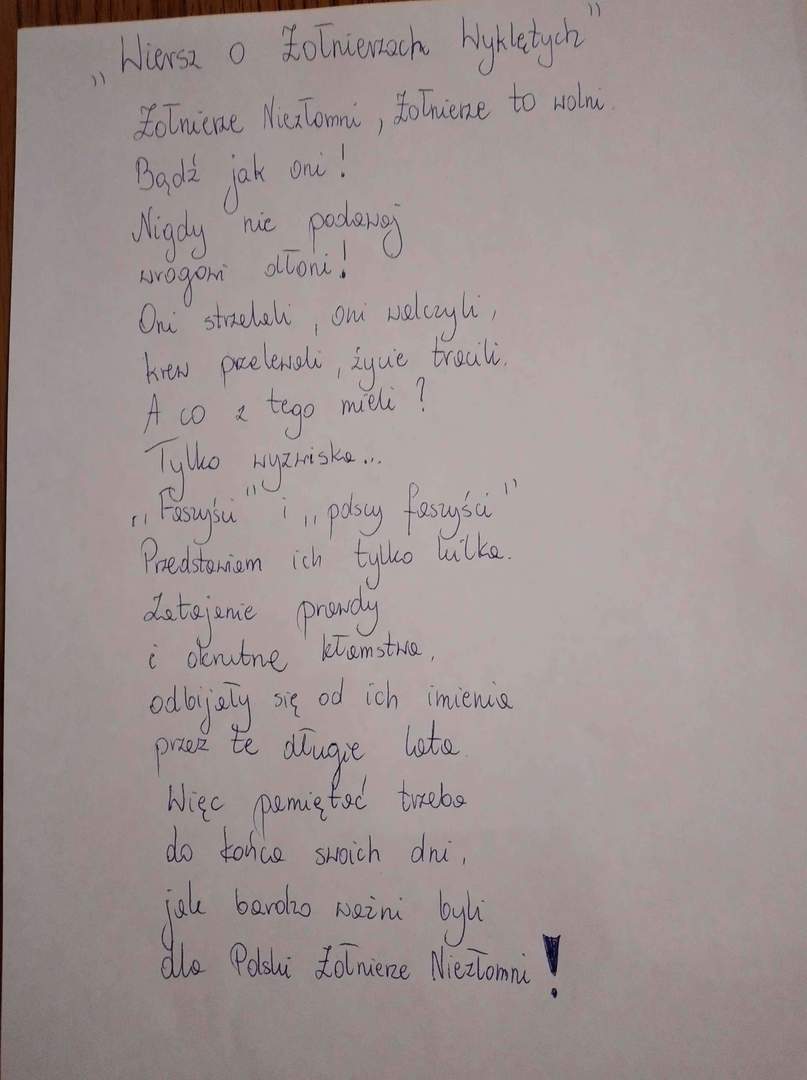 „Wiersz o Żołnierzach Wyklętych"
Żołnierze Niezłomni, Żołnierze to wolni.
Bądź jak oni!
Nigdy nie podawaj
wrogowi dłoni!
Oni strzelali, oni walczyli,
krew przelewali, życie tracili.
A co z tego mieli?
Tylko wyzwiska...
„Faszyści" i „polscy faszyści"
Przedstawiam ich tylko kilka.
Zatajenie prawdy
i okrutne kłamstwa,
odbijały się od ich imienia
przez te długie lata.
Więc pamiętać trzeba
do końca swoich dni,
jak bardzo ważni byli
dla Polski Żołnierze Niezłomni!